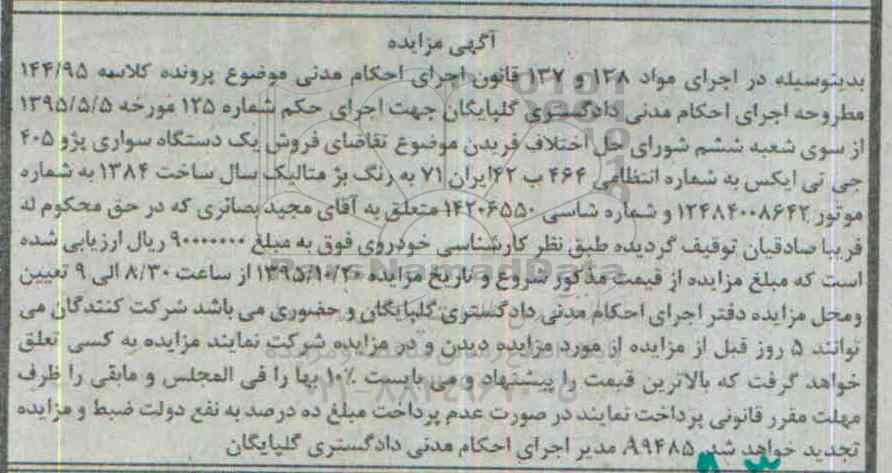 آگهی مزایده
بدینوسیله در اجرای مواد ۱۲۸ و ۱۳۷ قانون اجرای احکام مدنی موضوع پرونده کلاسه ۱۴۴/۹۵
مطروحه اجرای احکام مدنی دادگستری گلپایگان جهت اجرای حکم شماره ۱۲۵ مورخه ۱۳۹۵/۵/۵
از سوی شعبه ششم شورای حل اختلاف فریدن موضوع تقاضای فروش یک دستگاه سواری پژو ۴۰۵
جی تی ایکس به شماره انتظامی ۴۶۴ ب ۴۲ ایران ۷۱ به رنگ بژ متالیک سال ساخت ۱۳۸۴ به شماره
موتور ۱۲۴۸۴۰۰۸۶۴۲ و شماره شاسی ۱۴۲۰۶۵۵۰ متعلق به آقای مجید بصائری که در حق محکوم له
فریبا صادقیان توقیف گردیده طبق نظر کارشناسی خودروی فوق به مبلغ ۹۰۰۰۰۰۰۰ ریال ارزیابی شده
است که مبلغ مزایده از قیمت مذکور شروع و تاریخ مزایده ۱۳۹۵/۱۰/۲۰ از ساعت ۸/۳۰ الی ۹ تعیین
ومحل مزایده دفتر اجرای احکام مدنی دادگستری گلپایگان و حضوری می باشد شرکت کنندگان می
توانند ۵ روز قبل از مزایده از مورد مزایده دیدن و در مزایده شرکت نمایند مزایده به کسی تعلق
خواهد گرفت که بالاترین قیمت را پیشنهاد و می بایست ۱۰٪ بها را فی المجلس و مابقی را ظرف
مهلت مقرر قانونی پرداخت نمایند در صورت عدم پرداخت مبلغ ده درصد به نفع دولت ضبط و مزایده
تجدید خواهد شد. A۹۴۸۵ مدیر اجرای احکام مدنی دادگستری گلپایگان